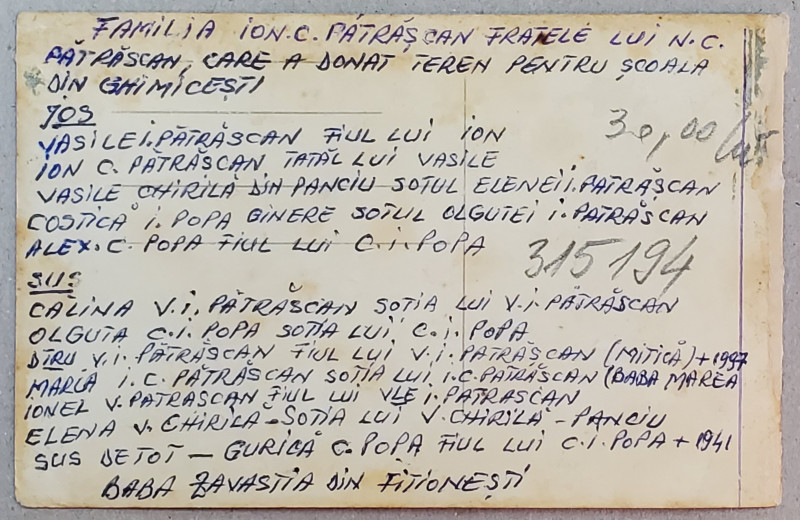 FAMILIA ION.C. PĂTRĂȘCAN FRATELE LUI N.C.
PĂTRĂSCAN, CARE A DONAT TEREN PENTRU ȘCOALA
DIN GHIMICEȘTI
JOS
VASILE I. PĂTRĂSCAN FIUL LUI ION
30,00
ION C. PĂTRĂSCAN TATĂL LUI VASILE
VASILE CHIRILĂ DIN PANCIU SOTUL ELENEI I. PATRAȘCAN
COSTICĂ I. POPA GINERE SOTUL OLGUTEI I. PATRAȘCAN
ALEX. C. POPA FIUL LUI C.I. POPA
315194
SUS
CĂLINA V.I. PĂTRĂSCAN SOTIA LUI V.I. PĂTRĂSCAN
OLGUTA C.I. POPA SOTIA LUI C.I. POPA
DTRU V.I. PĂTRĂSCAN FIUL LUI V.I. PATRAȘCAN (MITICĂ) + 1997
MARIA I.C. PĂTRĂSCAN SOTIA LUI I.C. PĂTRĂSCAN (BABA MAREA
IONEL V. PATRASCAN FIUL LUI VLE I. PATRASCAN
ELENA V. CHIRILĂ - SOTIA LUI V. CHIRILĂ - PANCIU
SUS DE TOT - GURICĂ C. POPA FIUL LUI C.I. POPA + 1941
BABA ZAVASTIA DIN FITIONEȘTI